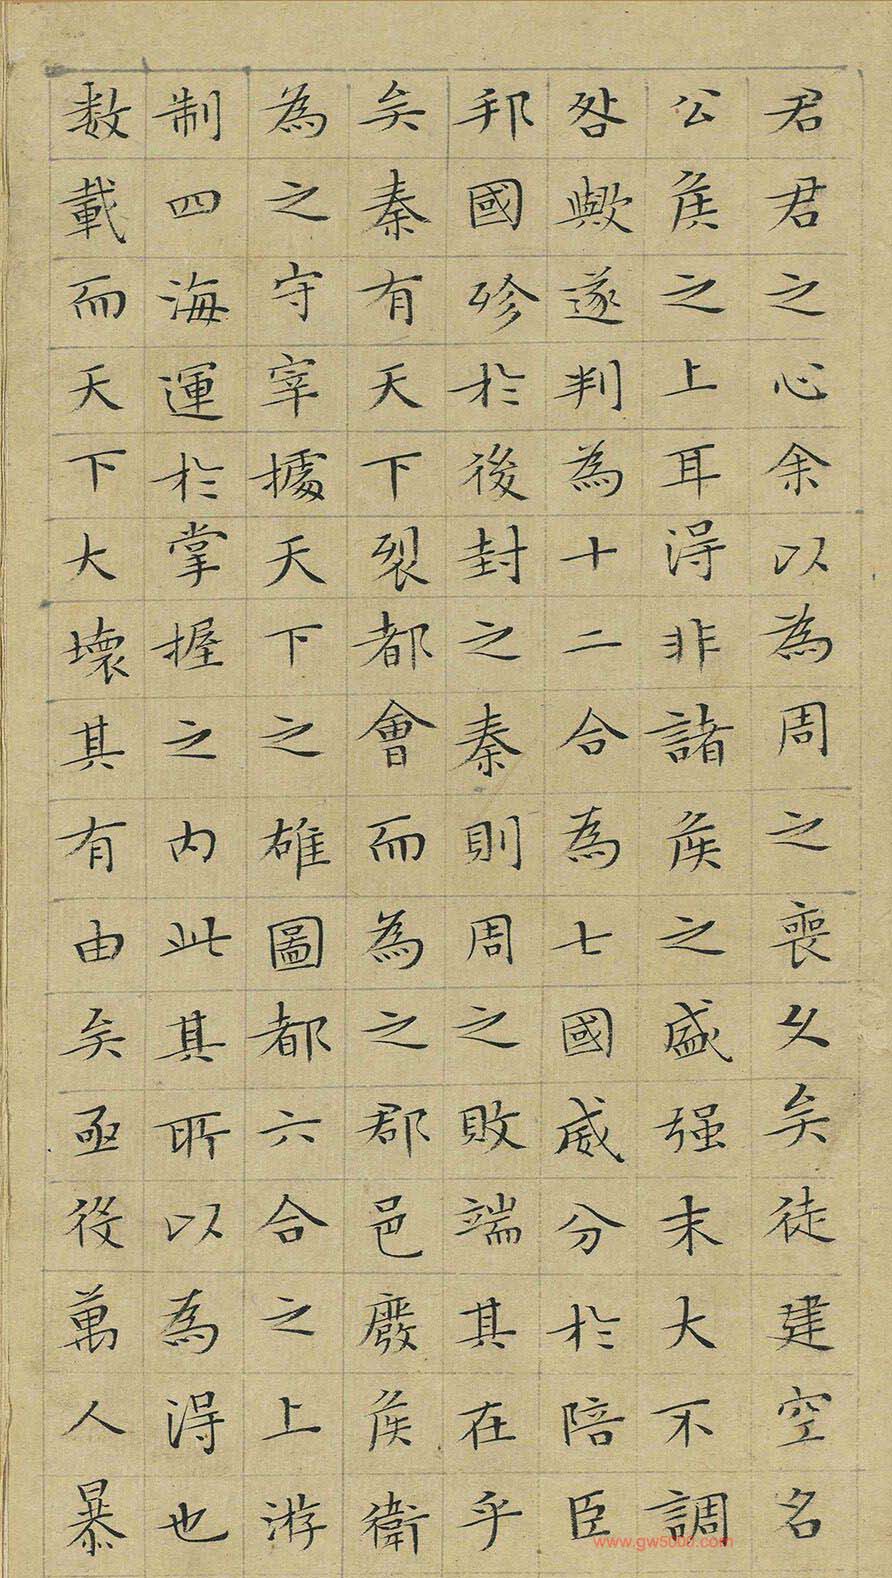 君君之心余以為周之喪久矣徒建空名
公矦之上耳得非諸矦之盛强末大不調
咎歟遂判為十二合為七國威分於陪臣
邦國殄於後封之秦則周之敗端其在乎
矣秦有天下裂都會而為之郡邑廢矦衛
為之守宰據天下之雄圖都六合之上游
制四海運於掌握之內此其所以為得也
数載而天下大壞其有由矣亟役萬人暴
www.gw5000.com